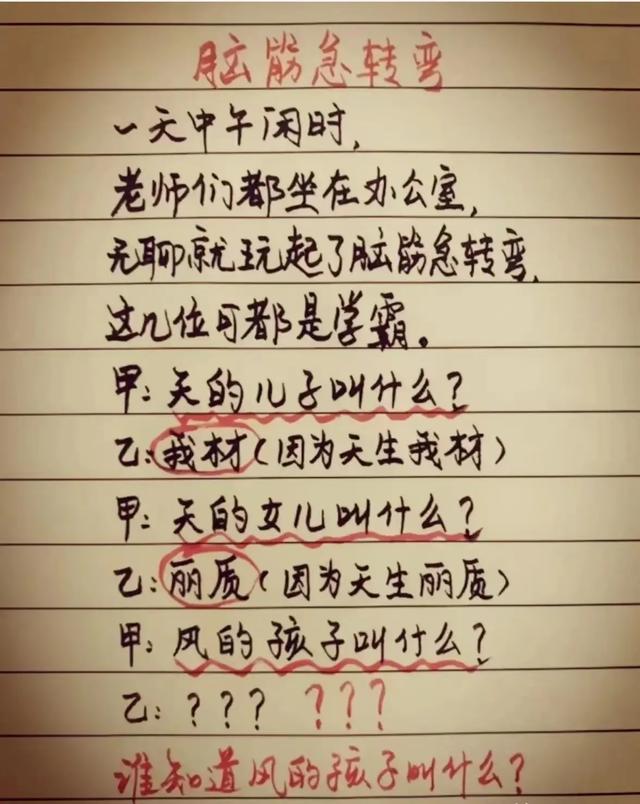 脑筋急转弯
一天中午闲时,
老师们都坐在办公室,
无聊就玩起了脑筋急转弯,
这几位可都是学霸。
甲:天的儿子叫什么?
乙:我材(因为天生我材)
甲:天的女儿叫什么?
乙:丽质(因为天生丽质)
甲:风的孩子叫什么?
乙:??? ???
谁知道风的孩子叫什么?